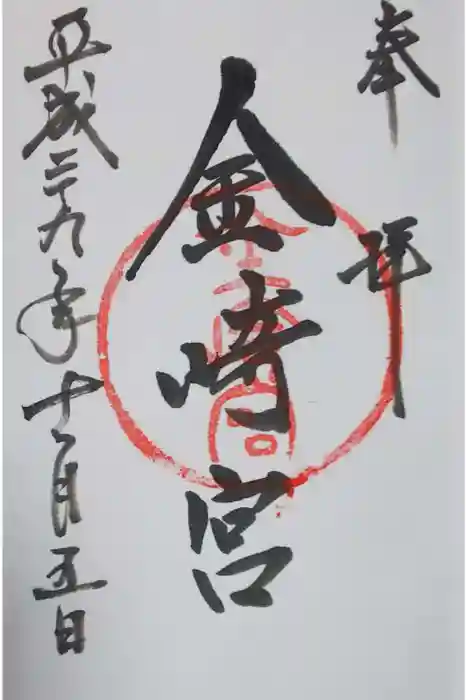 奉拝
金崎宮
平成二十九年十一月五日